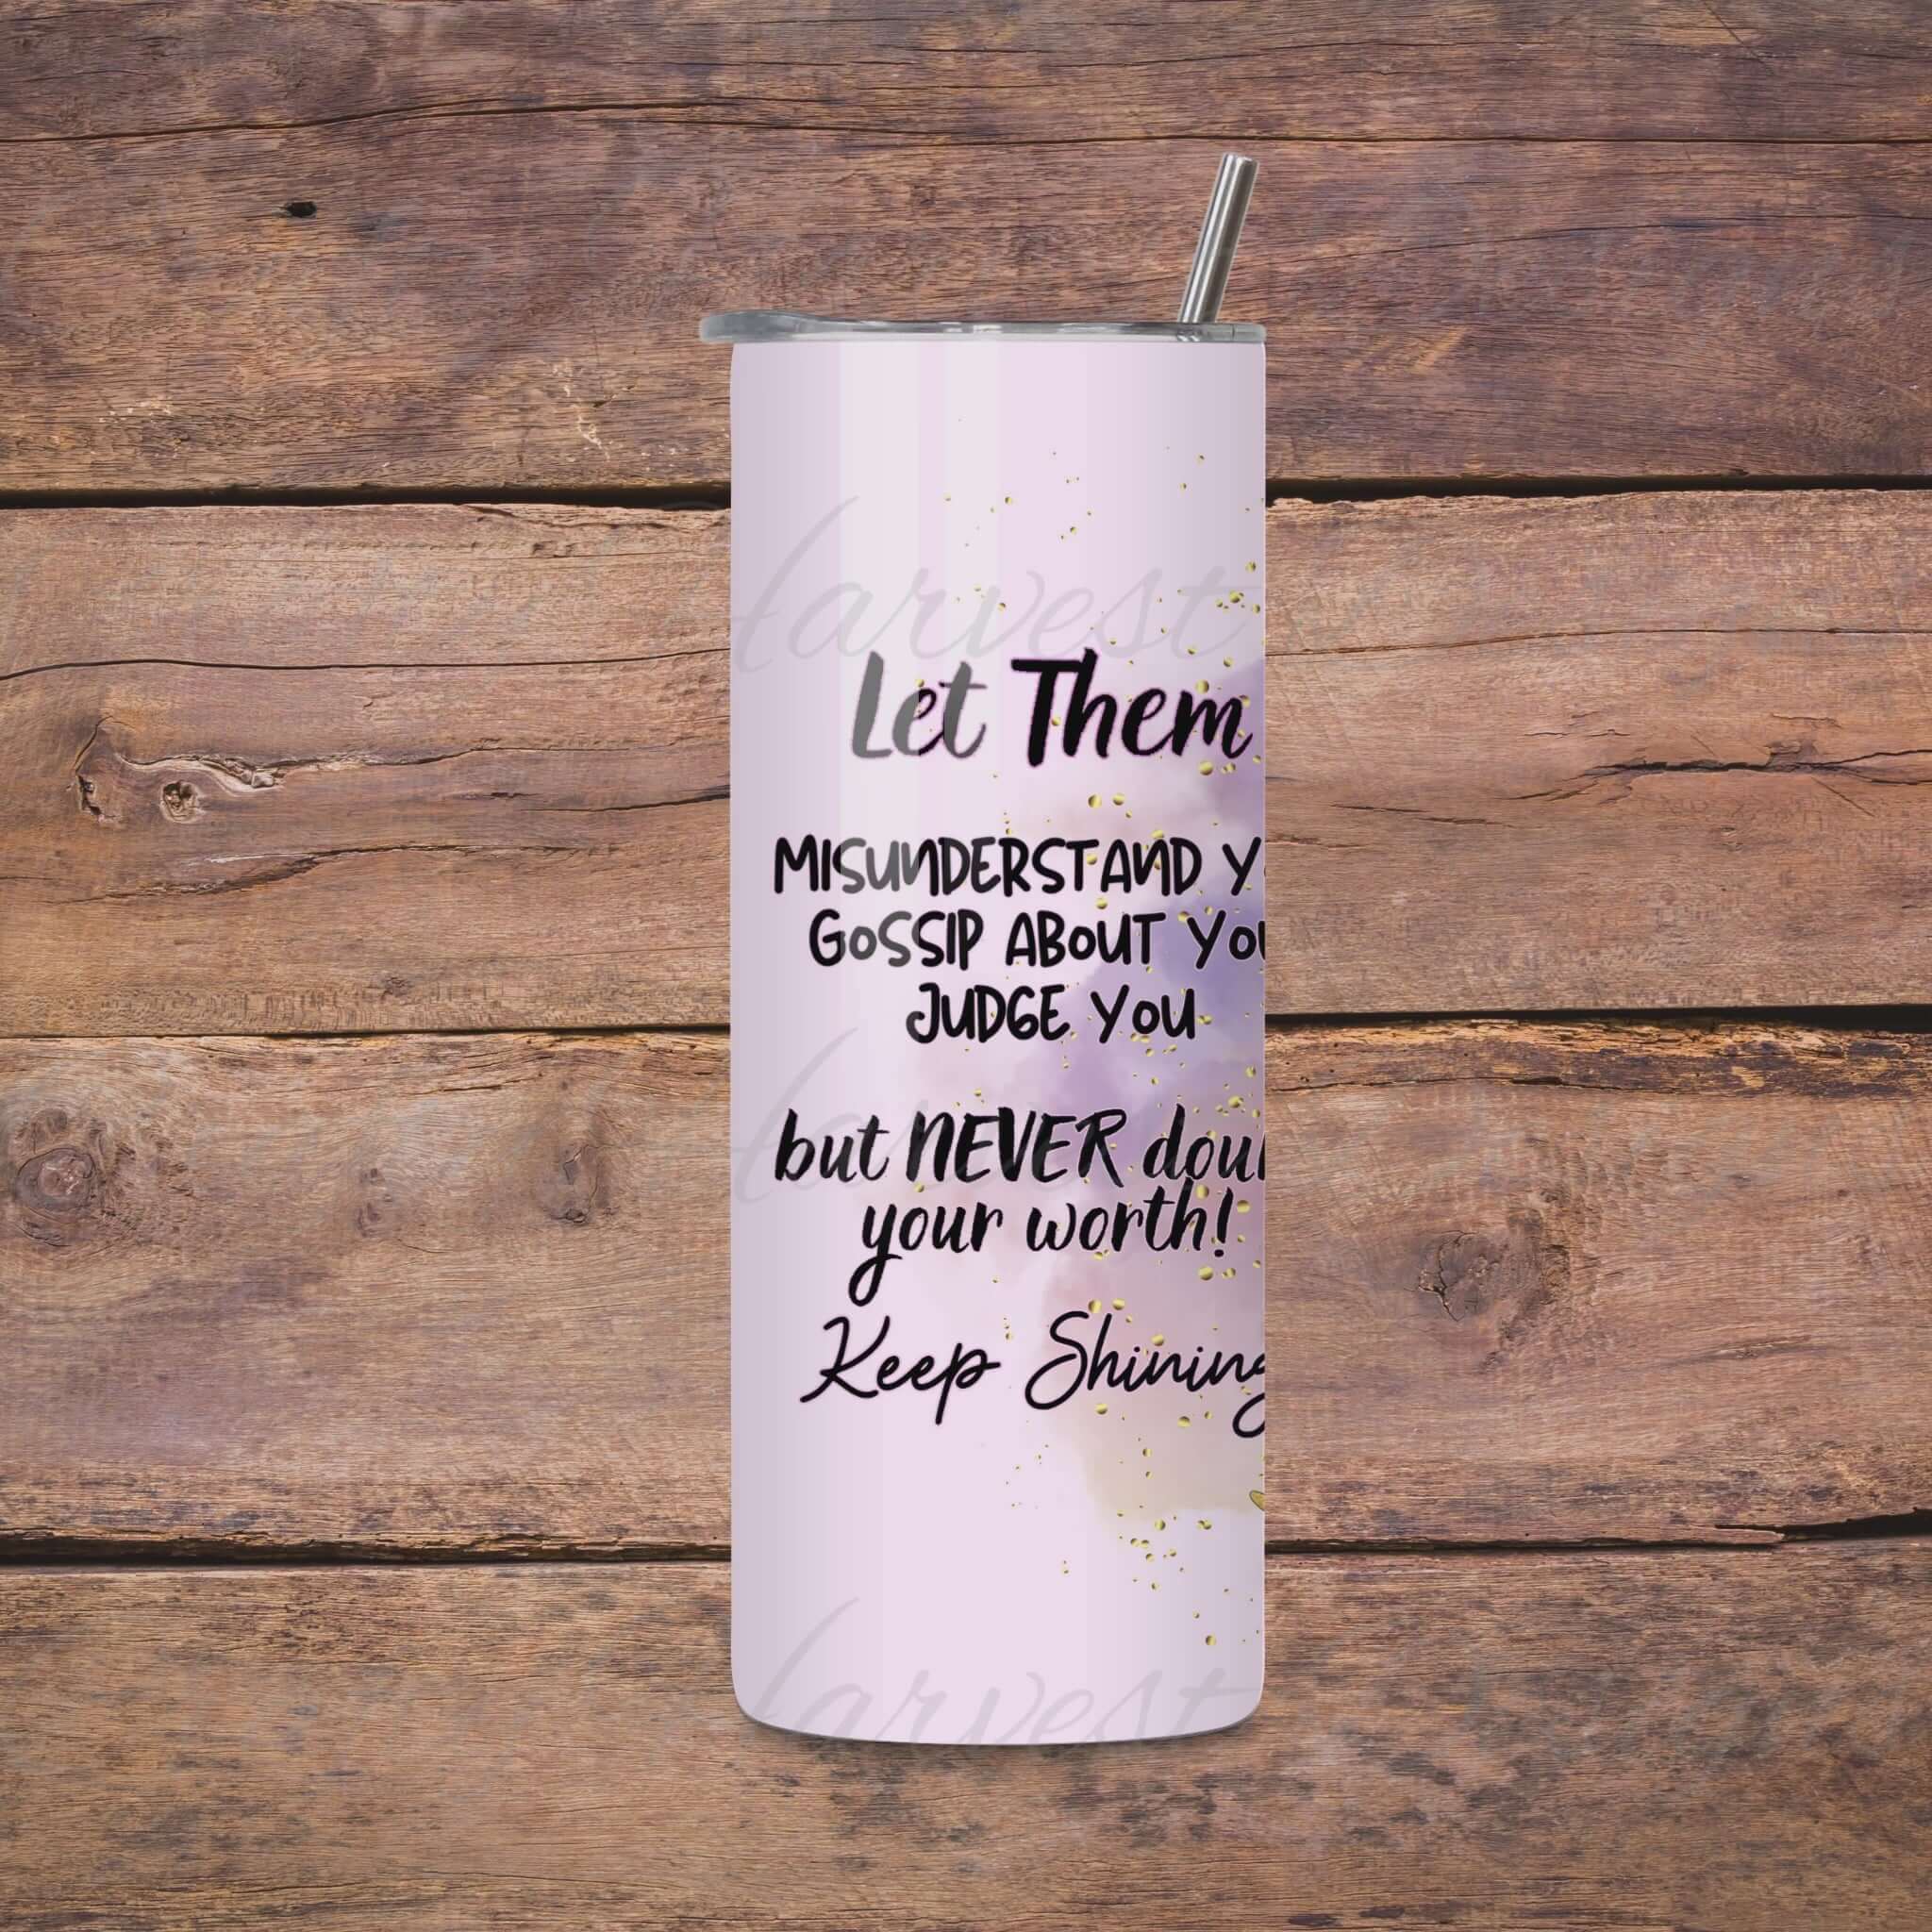 Harvest
Let Them
MISUNDERSTAND YO
GOSSIP ABOUT YOU
JUDGE YOU
Harvest
but NEVER doub
your worth!
Keep Shining
Harvest